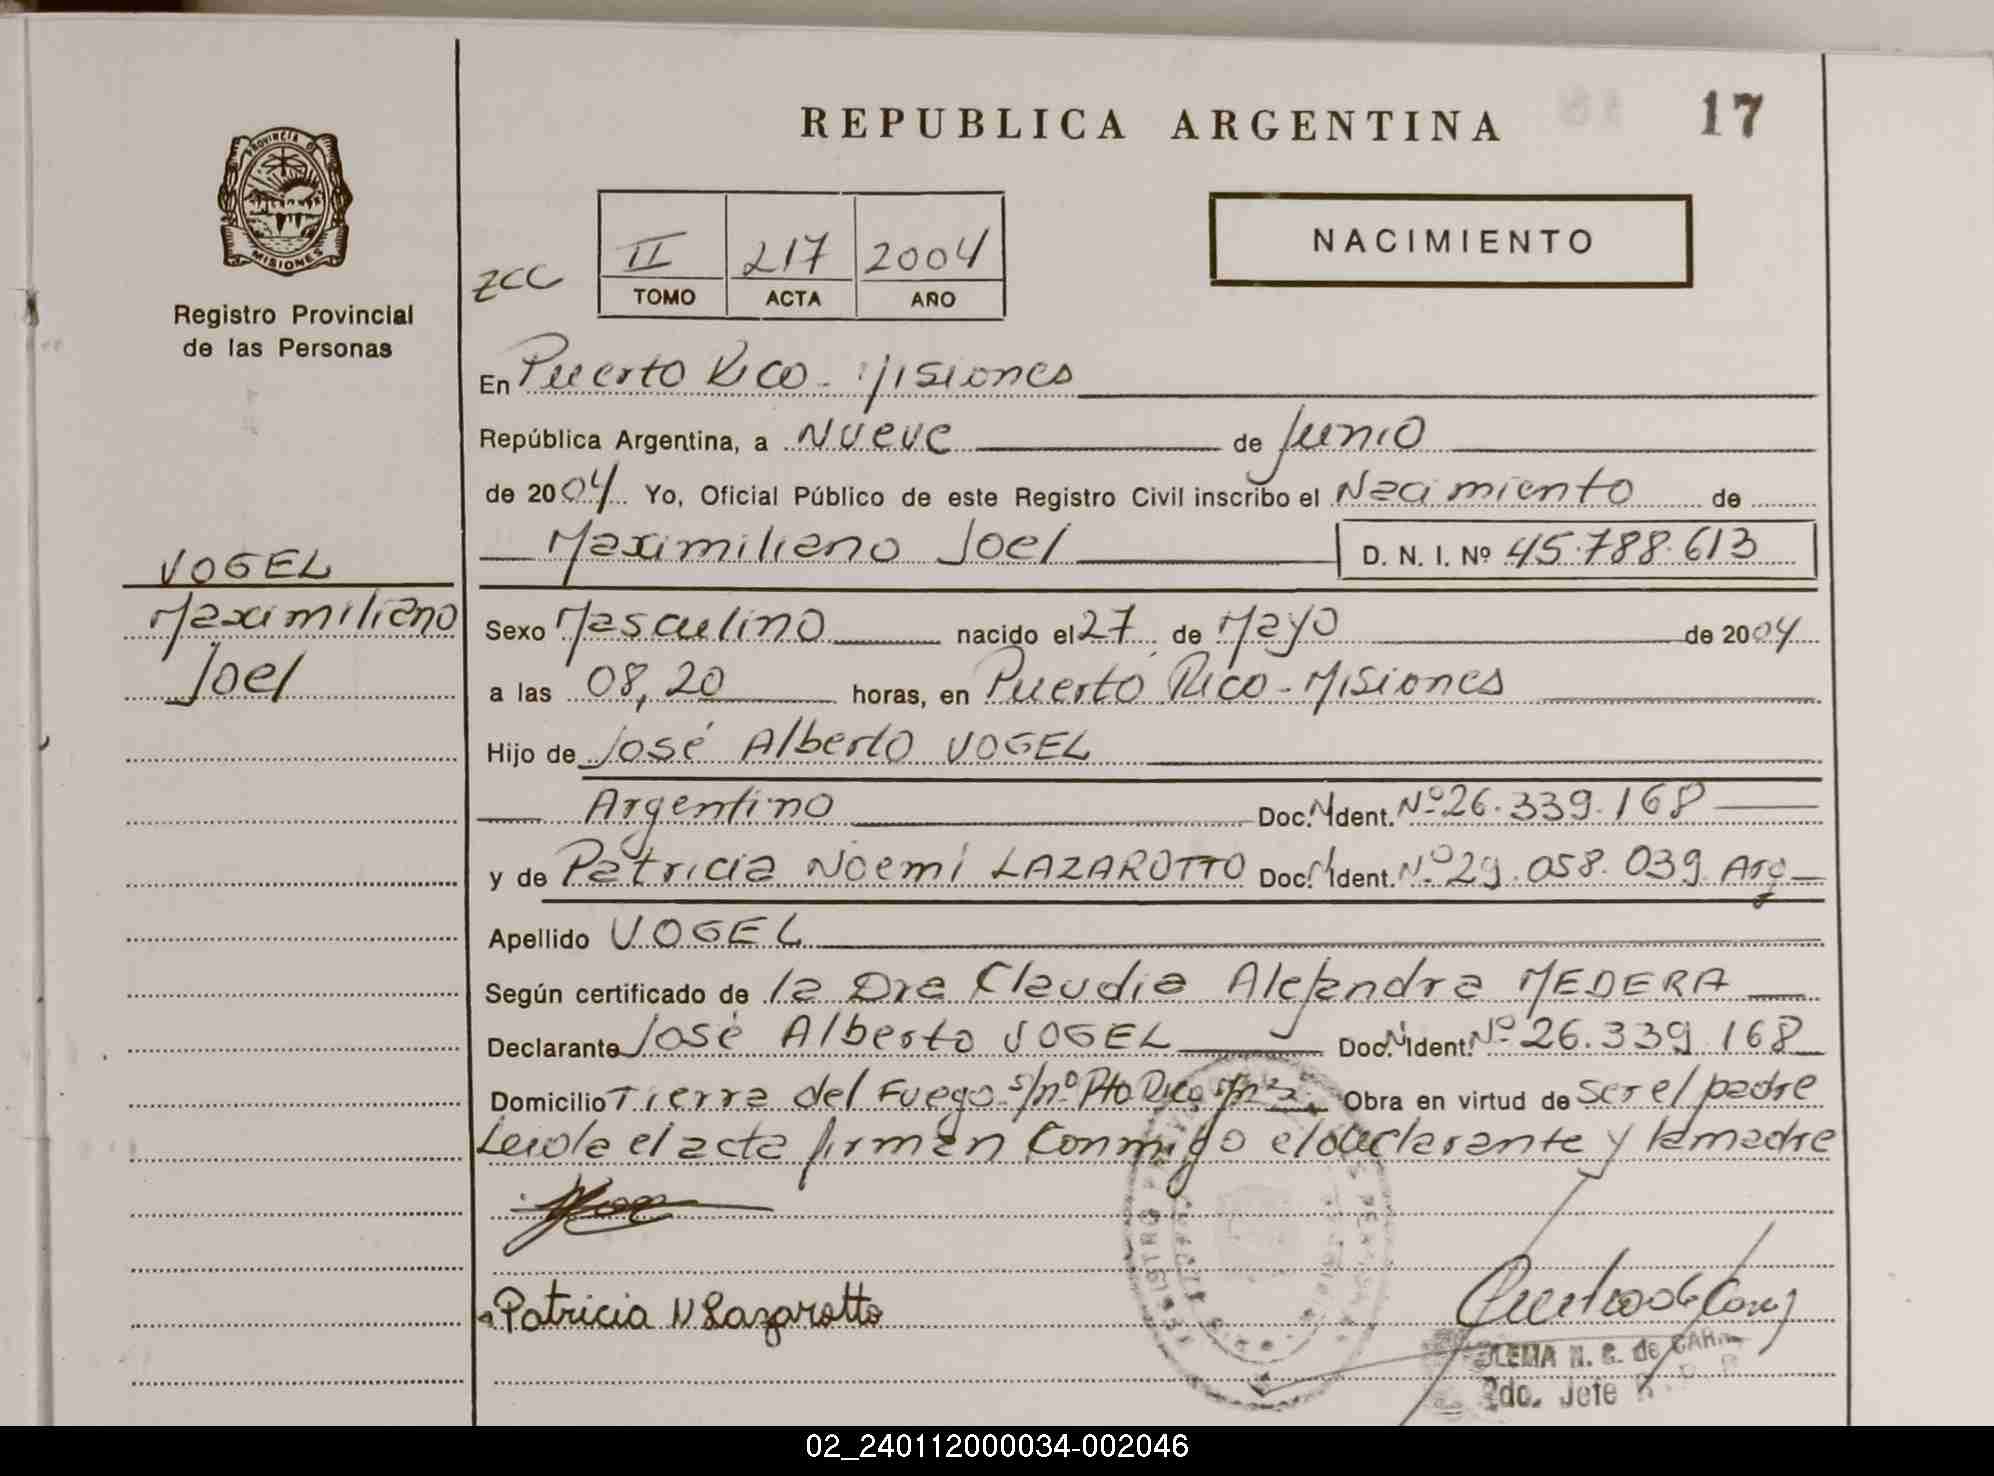 REPUBLICA ARGENTINA
17
PROVINCIA D
MISIONES
Registro Provincial
de las Personas
II 217 2004
TOMO ACTA AÑO
NACIMIENTO
En Puerto Rico - Misiones
República Argentina, a Nueve de Junio
de 2004 Yo, Oficial Público de este Registro Civil inscribo el Nacimiento de
Maximiliano Joel D. N. I. Nº 45.788.613
VOGEL
Maximiliano
Joel
Sexo Masculino nacido el 27 de Mayo de 2004
a las 08,20 horas, en Puerto Rico - Misiones
Hijo de José Alberto VOGEL
Argentino Doc. N Ident. Nº 26.339.168
y de Patricia Noemí LAZAROTTO Doc. N Ident. Nº 29.058.039 Arg
Apellido VOGEL
Según certificado de la Dra Claudia Alejandra MEDERA
Declarante José Alberto VOGEL Doc. N Ident. Nº 26.339.168
Domicilio Tierra del Fuego s/nº Pto Rico Obra en virtud de ser el padre
Leida el acta firman conmigo el declarante y la madre
Patricia N Lazarotto
N. G. de
2do. Jefe
02_240112000034-002046